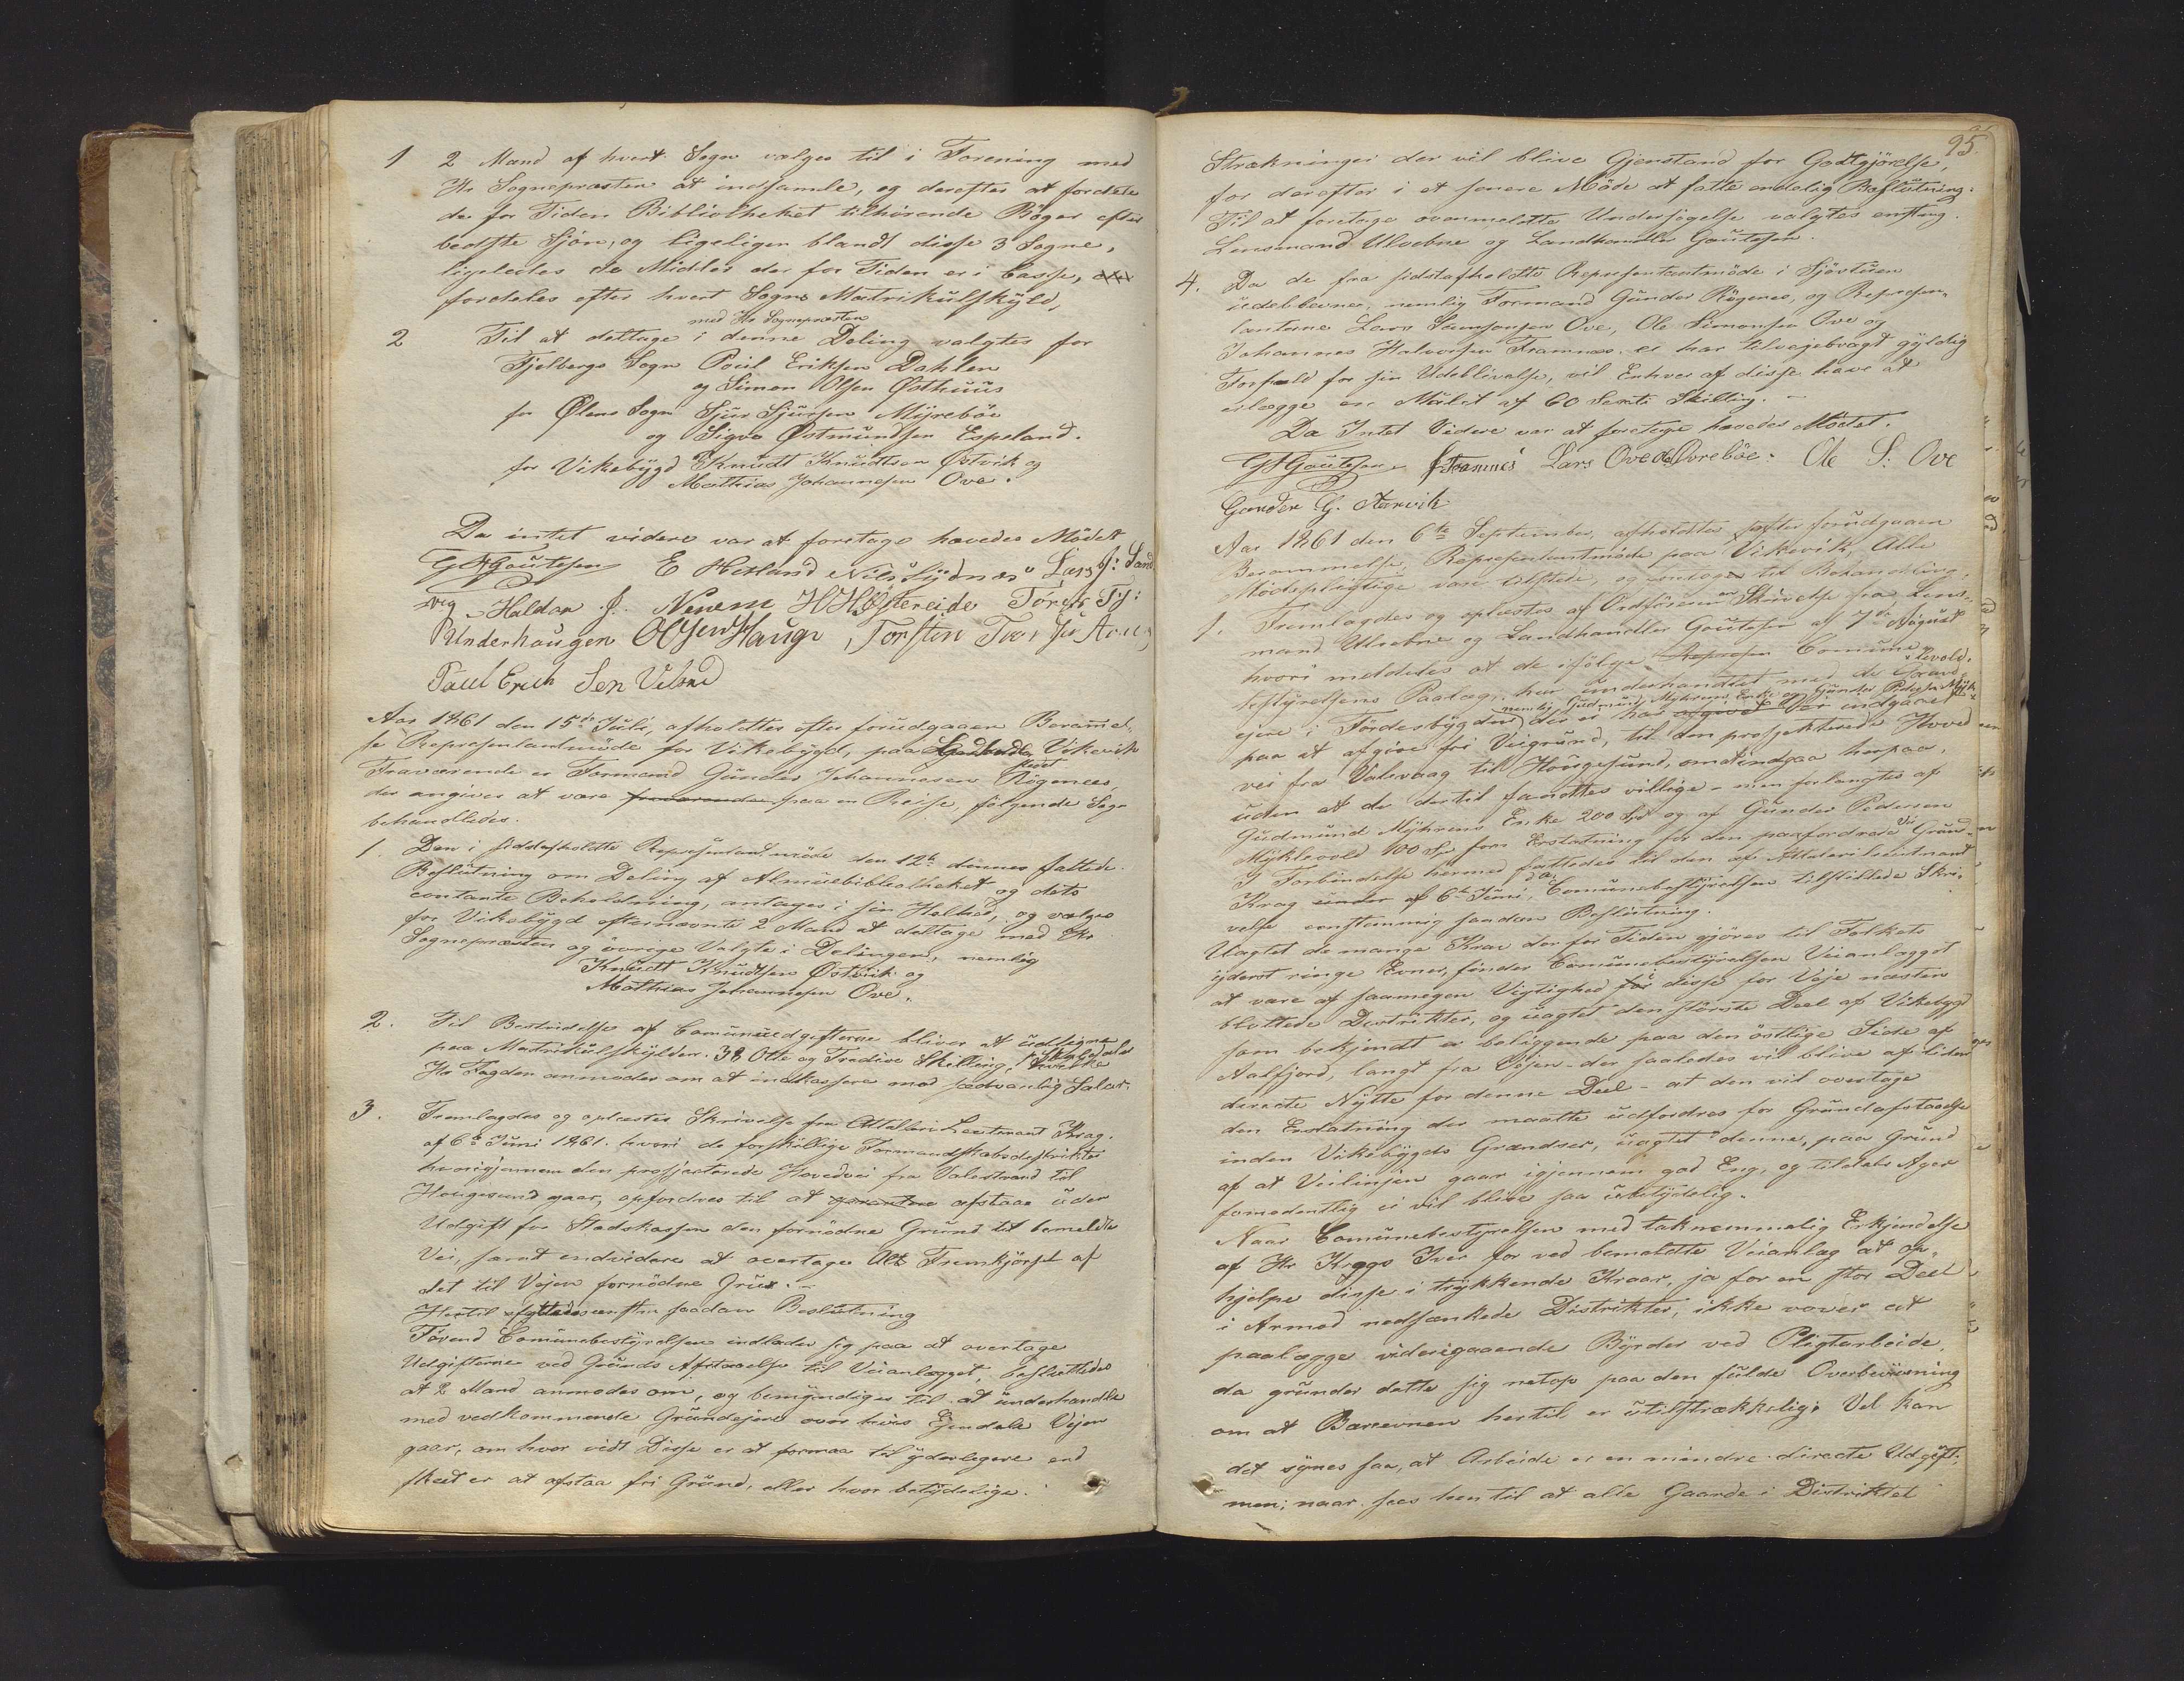 1 2 Mand af hvert Sogn vælges til i Forening med
Hr Sognepræsten at indsamle, og derefter at fordele
de for Tiden Bibliotheket tilhørende Bøger efter
bedste Sjøn, og ligeligen blandt disse 3 Sogne,
ligeledes de Midler der for Tiden er i Casse,
fordeles efter hvert Sogns Matrikulskyld,
med Hr Sognepræsten
2 Til at deltage i denne Deling valgtes for
Fjelbergs Sogn Poul Eriksen Dahlen
og Simon Olsen Østhuus
for Ølens Sogn Sjur Sjursen Myrebøe
og Sigve Østmundsen Espeland.
for Vikebygd Knudt Knudtsen Østvik og
Mathias Johannesen Ove.
Da intet videre var at foretage hævedes Mødet
G Gautesen E Hetland Nils Lydnæs Lars J: Sand
vig Haldor J. Nernem H H Østereide Tørres Tj:
R Underhaugen O Olsen Hauge, Torsten
Paul Erich Sen
Aar 1861 den 15de Juli, afholdtes efter forudgaaen Berammel-
se Representantmøde for Vikebygd, paa Vikevik
Fraværende er Formand Gunder Johannesen Røgenes,
der angives at være fraværende paa en Reise, følgende Sager
behandledes.
1. Den i sidstafholdte Representantmøde den 12te dennes fattede
Beslutning om Deling af Almuebibliotheket og dets
contante Beholdning, antages i sin Helhed, og vælges
for Vikebygd efternævnte 2 Mand at deltage med Hr
Sognepræsten og øvrige Valgte i Delingen, nemlig
Knudt Knudtsen Østvik og
Mathias Johannesen Ove.
2. Til Bestridelse af Comuneudgifterne bliver at udlignes
paa Matrikulskylden. 38 Otte og Tredive Skilling, p Skylddaler hvilke
Hr Fogden anmodes om at indkassere mod sædvanlig Salær.
3. Fremlagdes og oplæstes Skrivelse fra Attalleri Leutenant Krag.
af 6te Juni 1861. hvori de forskillige Formandskabsdistrikter
hvorigjennem den prosjecterede Hovedvei fra Valestrand til
Hougesund gaar, opfordres til at garantere afstaae uden
Udgift for Stadskassen den fornødne Grund til bemeldte
Vei, samt endvidere at overtage Alt Fremkjørsel af
det til Vejen fornødne Gruus.
Hertil fattedes saadan Beslutning
Førend Comunebestyrelsen indlader sig paa at overtage
Udgifterne ved Grunds Afstaaelse til Veianlægget, besluttedes
at 2 Mand anmodes om, og bemyndiges til at underhandle
med vedkommende Grundejere over hvis Ejendele Vejen
gaar, om hvor vidt Disse er at formaa til yderlegere end
skeet er at afstaa fri Grund, eller hvor betydelige
95.
Strækninger der vil blive Gjenstand for Godtgjørelse,
for derefter i et senere Møde at fatte endelig Beslutning.
Til at foretage ovenmeldte Undersøgelse valgtes enstmg.
Lensmand Ulvebne og Landhandler Gautesen.
4. Da de fra sidstafholdte Representantmøde i Sjøstuen
udeblevne, nemlig Formand Gunder Røgenes, og Represen-
tanterne Lars Samsonsen Ove, Ole Simonsen Ove og
Johannes Halvorsen Framnæs. ei har tilvejebragt gyldig
Forfald for sin Udeblivelse, vil Enhver af disse have at
erlægge en Mulct af 60 Sexti Skilling. –
Da Intet Videre var at foretage hævedes Mødet.
G Gautesen J Framnes Lars Ove de Dvrebøe. Ole S: Ove
Gunder G. Aarvik
Aar 1861 den 6te September, afholdtes efter forudgaaen
Berammelse, Representantmøde paa Vikevik, Alle
Mødepligtige vare tilstede, og foretoges til Behandling,
1. Fremlagdes og oplæstes af Ordføreren en Skrivelse fra Lens-
mand Ulvebne og Landhandler Gautesen af 7de August
hvori meldeles at de ifølge Represen Comune
bestyrelsens Paalæg, har underhandlet med de Grund-
ejere i Førdesbygden nemlig Gudmund Myhrens Enke og Gunder Pedersen Mykle-
vold. der ei har indgaaet
paa at afgive fri Veigrund, til den prosjekterede Hoved
vei fra Valevaag til Hougesund, om at indgaa herpaa,
uden at de dertil fandtes villige – men forlangtes af
Gudmund Myhrens Enke 200 Spd og af Gunder Pedersen
Myklevold 100 Spd som Erstatning for den paafordrede Vei Grund.
I Forbindelse hermed fattedes til den af Attalerileutnant
Krag under af 6te Juni d. A., Comunebestyrelsen tilstillede Skri-
velse enstemmig saadan Beslutning.
Uagtet de mange Krav der for Tiden gjøres til Folkets
yderst ringe Evner, finder Comunebestyrelsen Veianlægget
at være af saamegen Vigtighed for i disse for Veje næsten
blottede Distrikter, og uagtet den største Deel af Vikebygd
som bekjendt er beliggende paa den østlige Side af
Aalfjord, langt fra Vejen – der saaledes vil blive af liden
directe Nytte for denne Deel – at den vil overtage
den Erstatning der maatte udfordres for Grundafstaaelse
inden Vikebygds Grændser, uagtet denne, paa Grund
af at Veilinjen gaar igjennem god Eng, og tildels Ager
fomodentlig ei vil blive saa ubetydelig.
Naar Comunebestyrelsen med taknemmelig Erkjendelse
af Hr Krags Iver for ved bemeldte Veianlæg at op-
hjelpe disse i trykkende Kaar, ja for en stor Deel
i Armod nedsænkede Distrikter, ikke vover at
paalægge viderigaaende Byrder ved Pligtarbeide,
da grunder dette sig netop paa den fulde Overbeviisning
om at Bæreevnen hertil er utilstrækkelig. Vel kan
det synes saa, at Arbeide er en mindre directe Udgift;
men; naar sees hen til at alle Gaarde i Distriktet